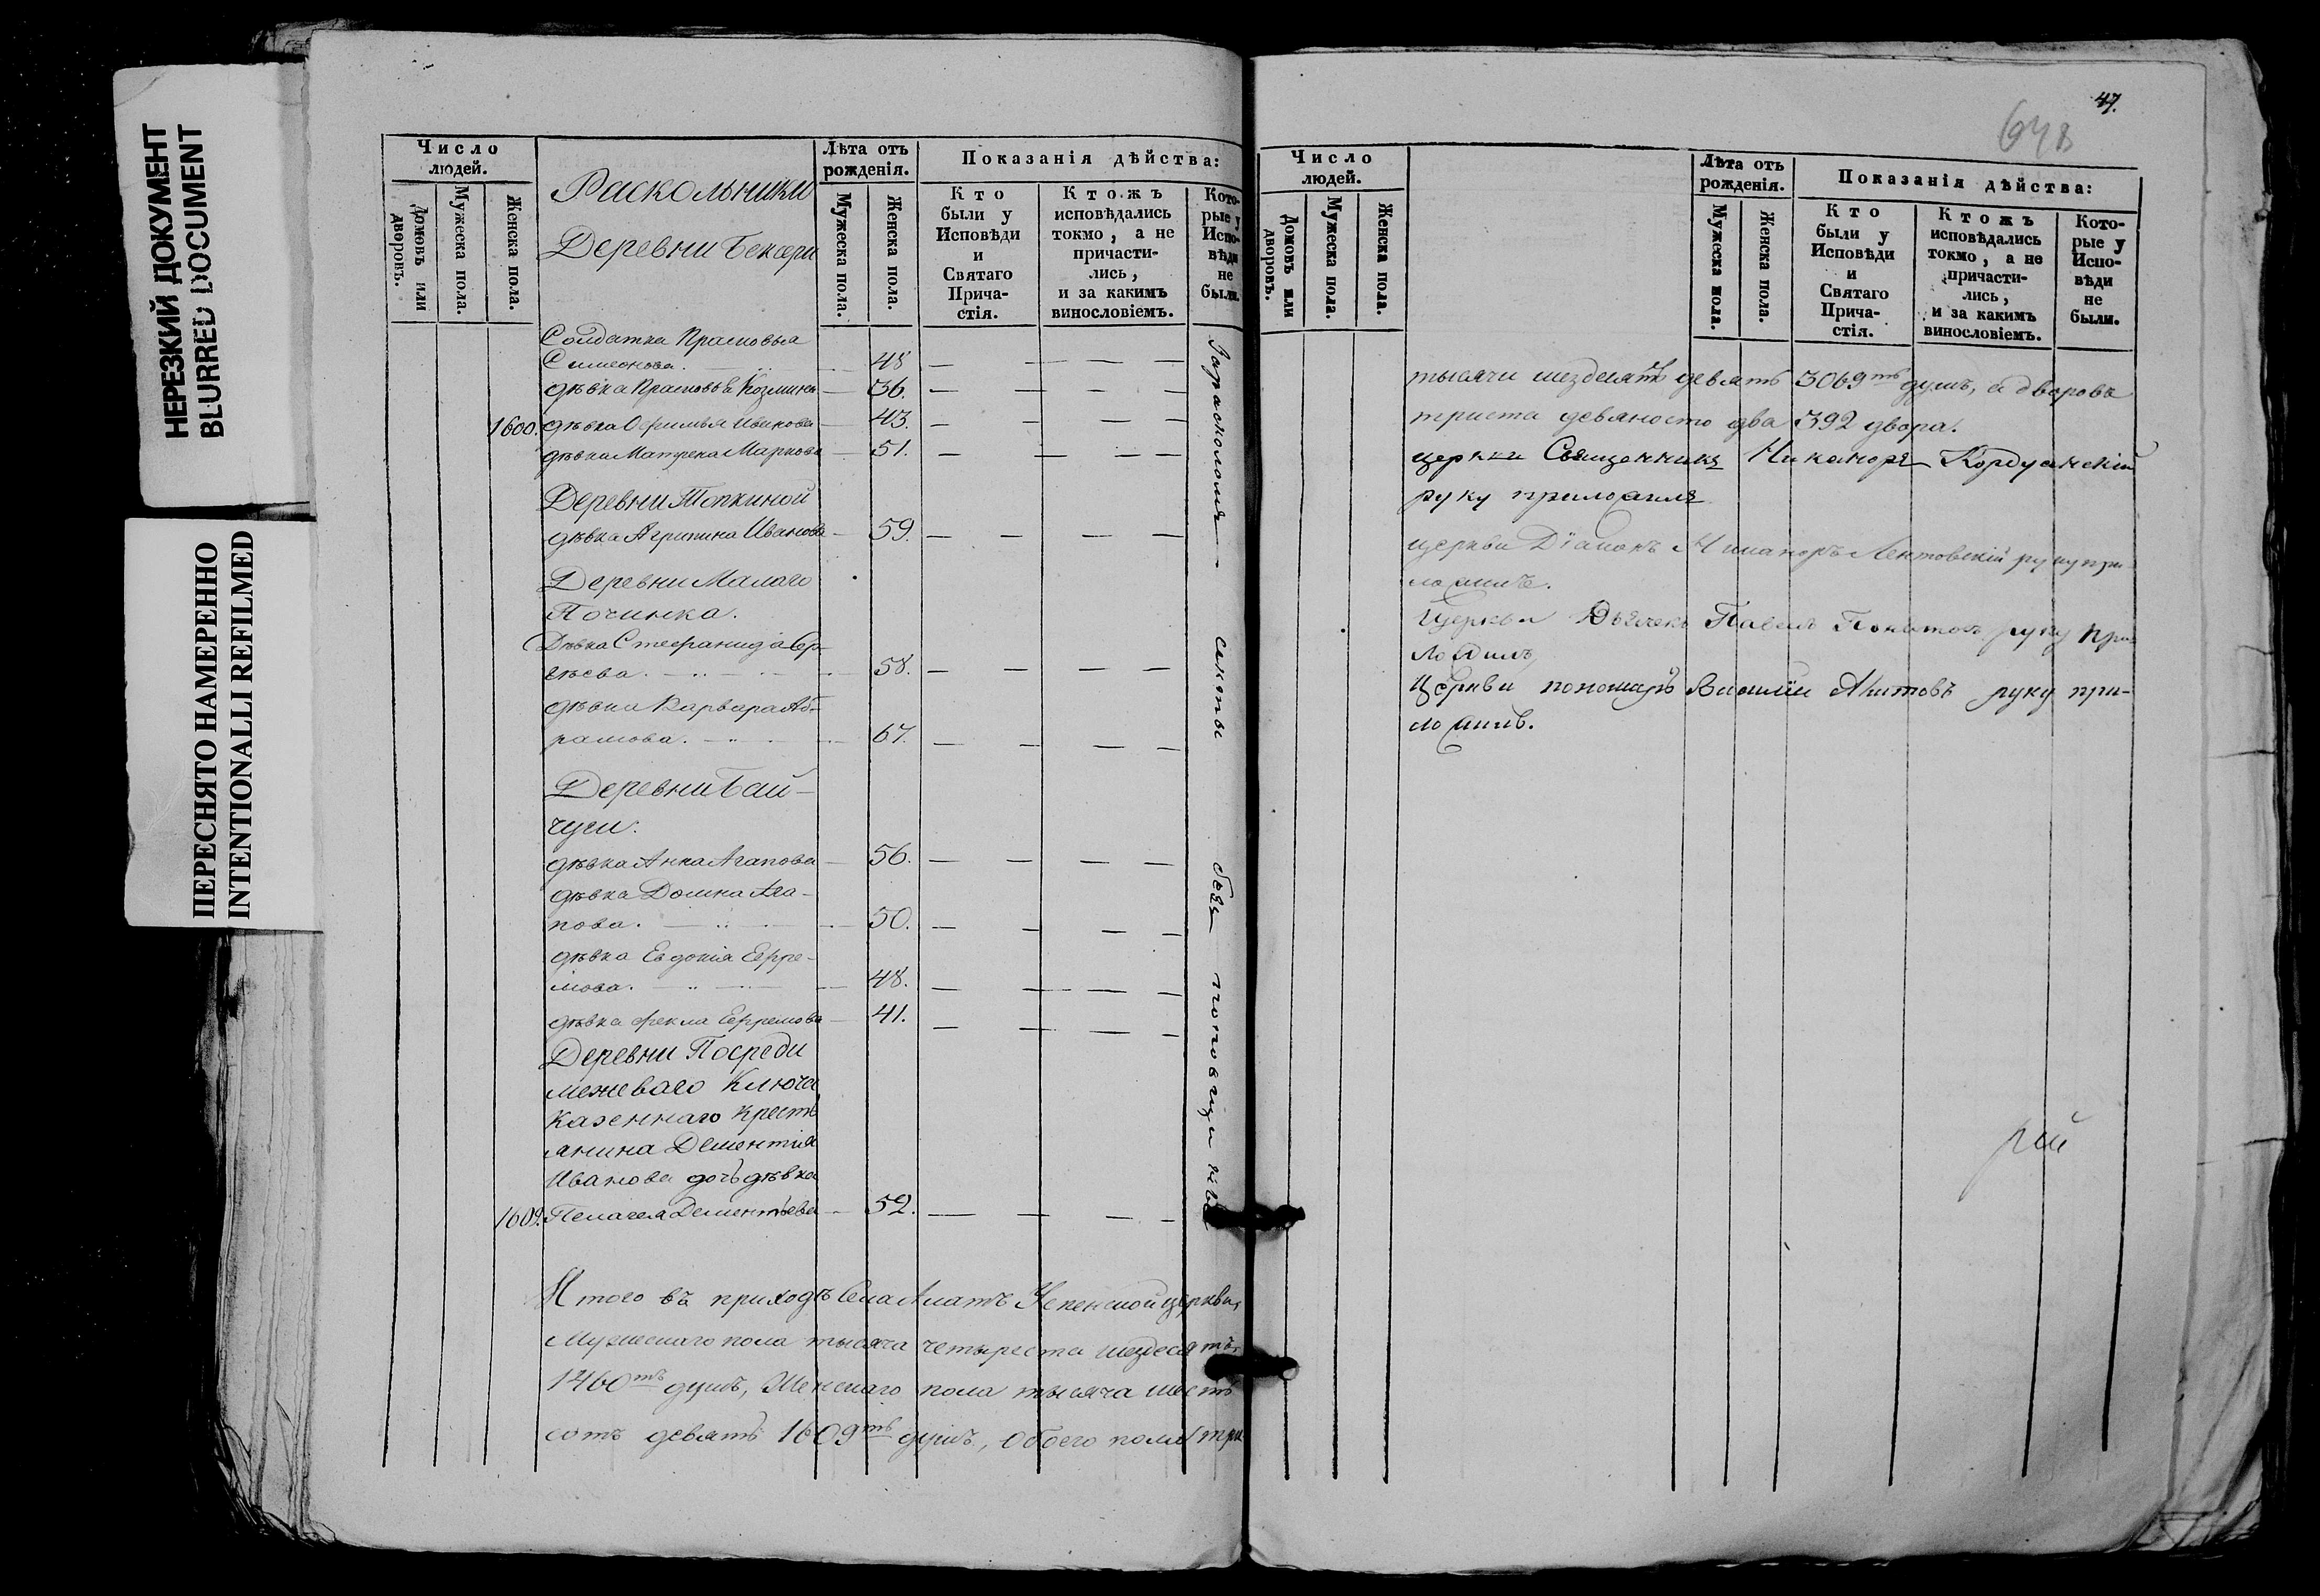 НЕРЕЗКИЙ ДОКУМЕНТ
BLURRED DOCUMENT
ПЕРЕСНЯТО НАМЕРЕННО
INTENTIONALLI REFILMED
Число людей.
Домовъ или дворовъ.
Мужеска пола.
Женска пола.
Раскольники
Деревни Бекари
Лѣта отъ рожденія.
Мужеска пола.
Женска пола.
Показанія дѣйства:
Кто были у Исповѣди и Святаго Причастія.
Ктожъ исповѣдались токмо, а не причастились, и за какимъ винословіемъ.
Которые у Исповѣди не были.
Солдатка Прасковья
Симеонова. 48
дѣвка Прасковья Козмина 36.
1600. дѣвка Ефимья 43.
дѣвка Матрена Маркова 51.
Деревни Тяпкиной
дѣвка Агрипина Иванова 59.
Деревни Малаго
Починка.
Дѣвка Стефанида Сер-
гѣева. 58.
дѣвка Варвара Аб-
рамова. 67.
Деревни Бай-
чуги.
дѣвка Анна Агапова 56.
дѣвка Домна Ага-
пова. 50.
дѣвка Евдокія Ефре-
мова. 48.
дѣвка Фекла Ефремова 41.
Деревни Посреди
межеваго Ключа
казеннаго крестъ
янина Дементія
Иванова дочь дѣвка
1609. Пелагея Дементьева 52.
За расколомъ секты безпоповщины
Итого въ приходѣ Села Алатъ церкви,
Мужескаго пола тысяча четыреста шездесятъ,
1460тъ душъ, Женскаго пола тысяча шесть
сотъ девять 1609ть душъ, Обоего пола три
47.
648
Число людей.
Домовъ или дворовъ.
Мужеска пола.
Женска пола.
Лѣта отъ рожденія.
Мужеска пола.
Женска пола.
Показанія дѣйства:
Кто были у Исповѣди и Святаго Причастія.
Ктожъ исповѣдались токмо, а не причастились, и за какимъ винословіемъ.
Которые у Исповѣди не были.
тысячи шездесятъ девять 3069ть душъ, а дворовъ
триста девяносто два 392 двора.
церкви Священникъ Никаноръ Кордуанскій
руку приложилъ
церкви Діаконъ Никаноръ Лентовскій руку при-
ложилъ.
Церкви Дьячекъ Павелъ руку при-
ложилъ
Церкви пономарь Василій Аитовъ руку при-
ложилъ.